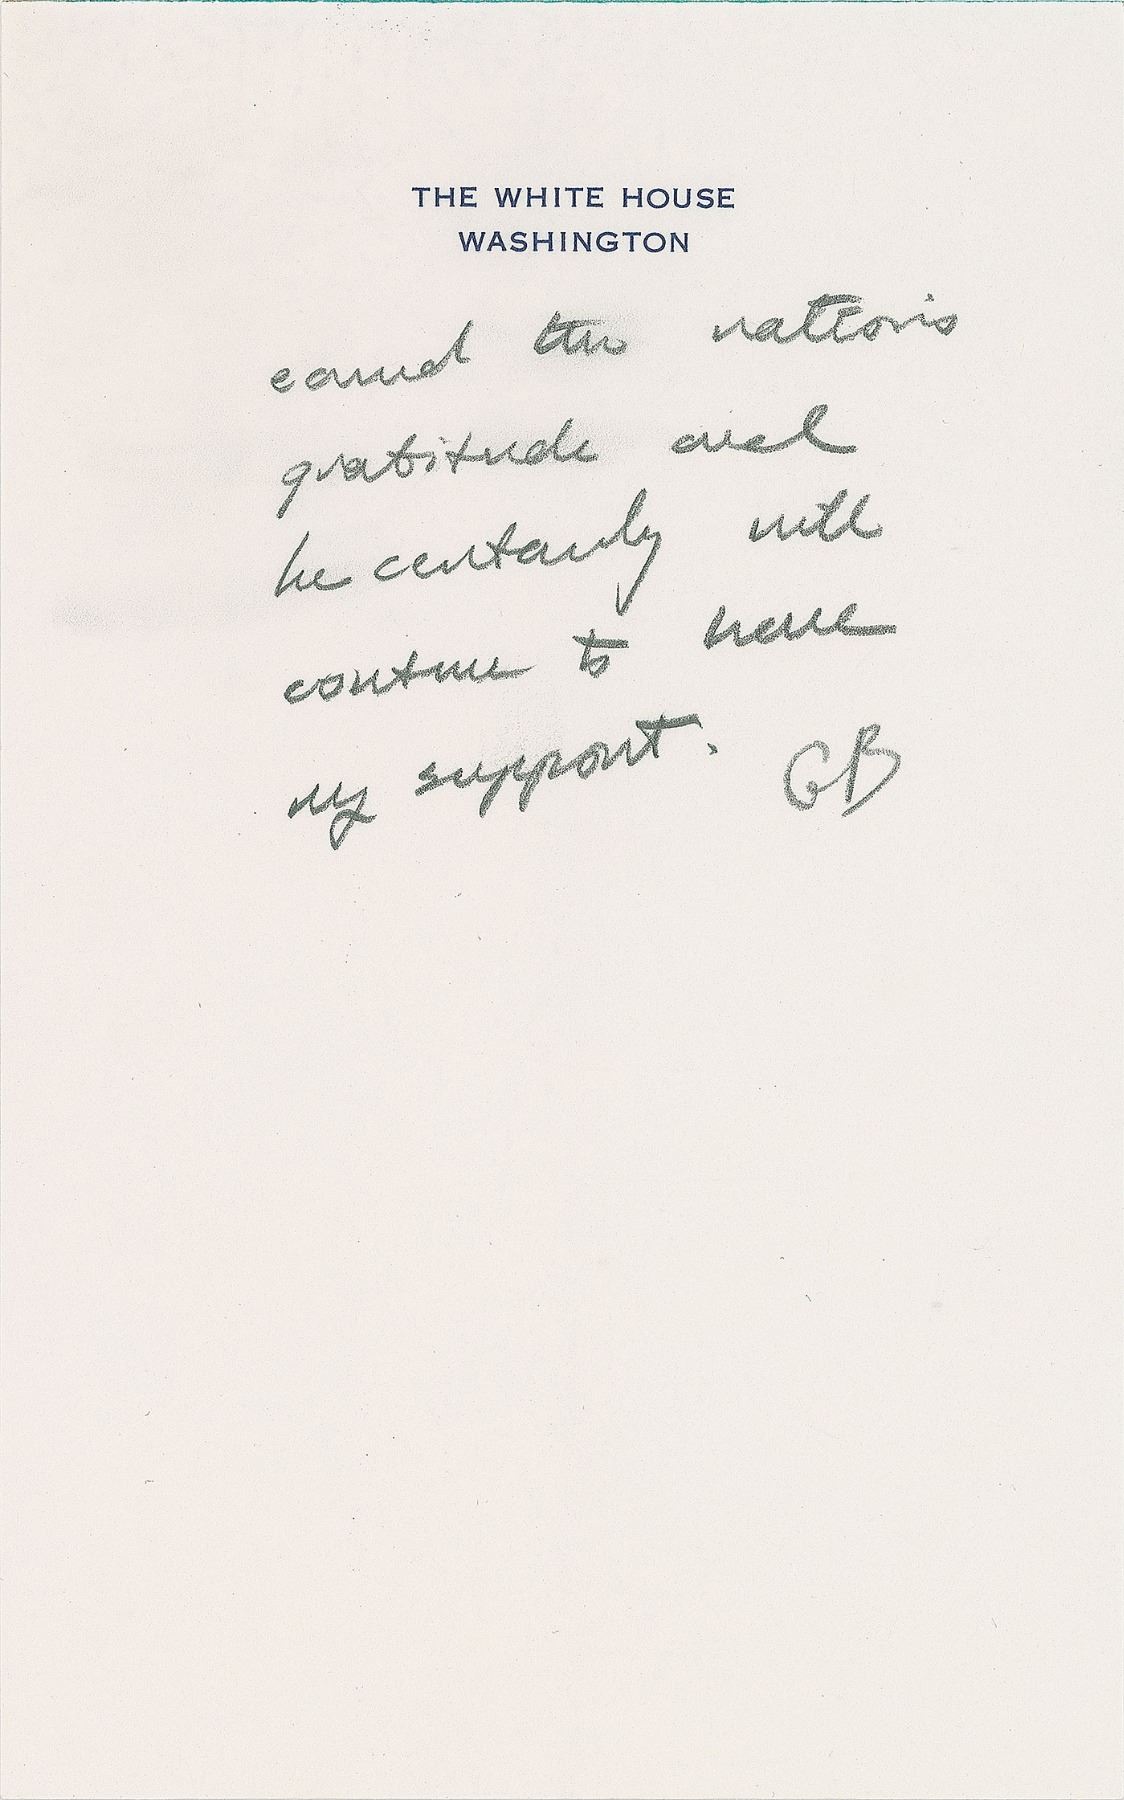 THE WHITE HOUSE
WASHINGTON
earned this nation's
gratitude and
he certainly will
continue to have
my support.
GB